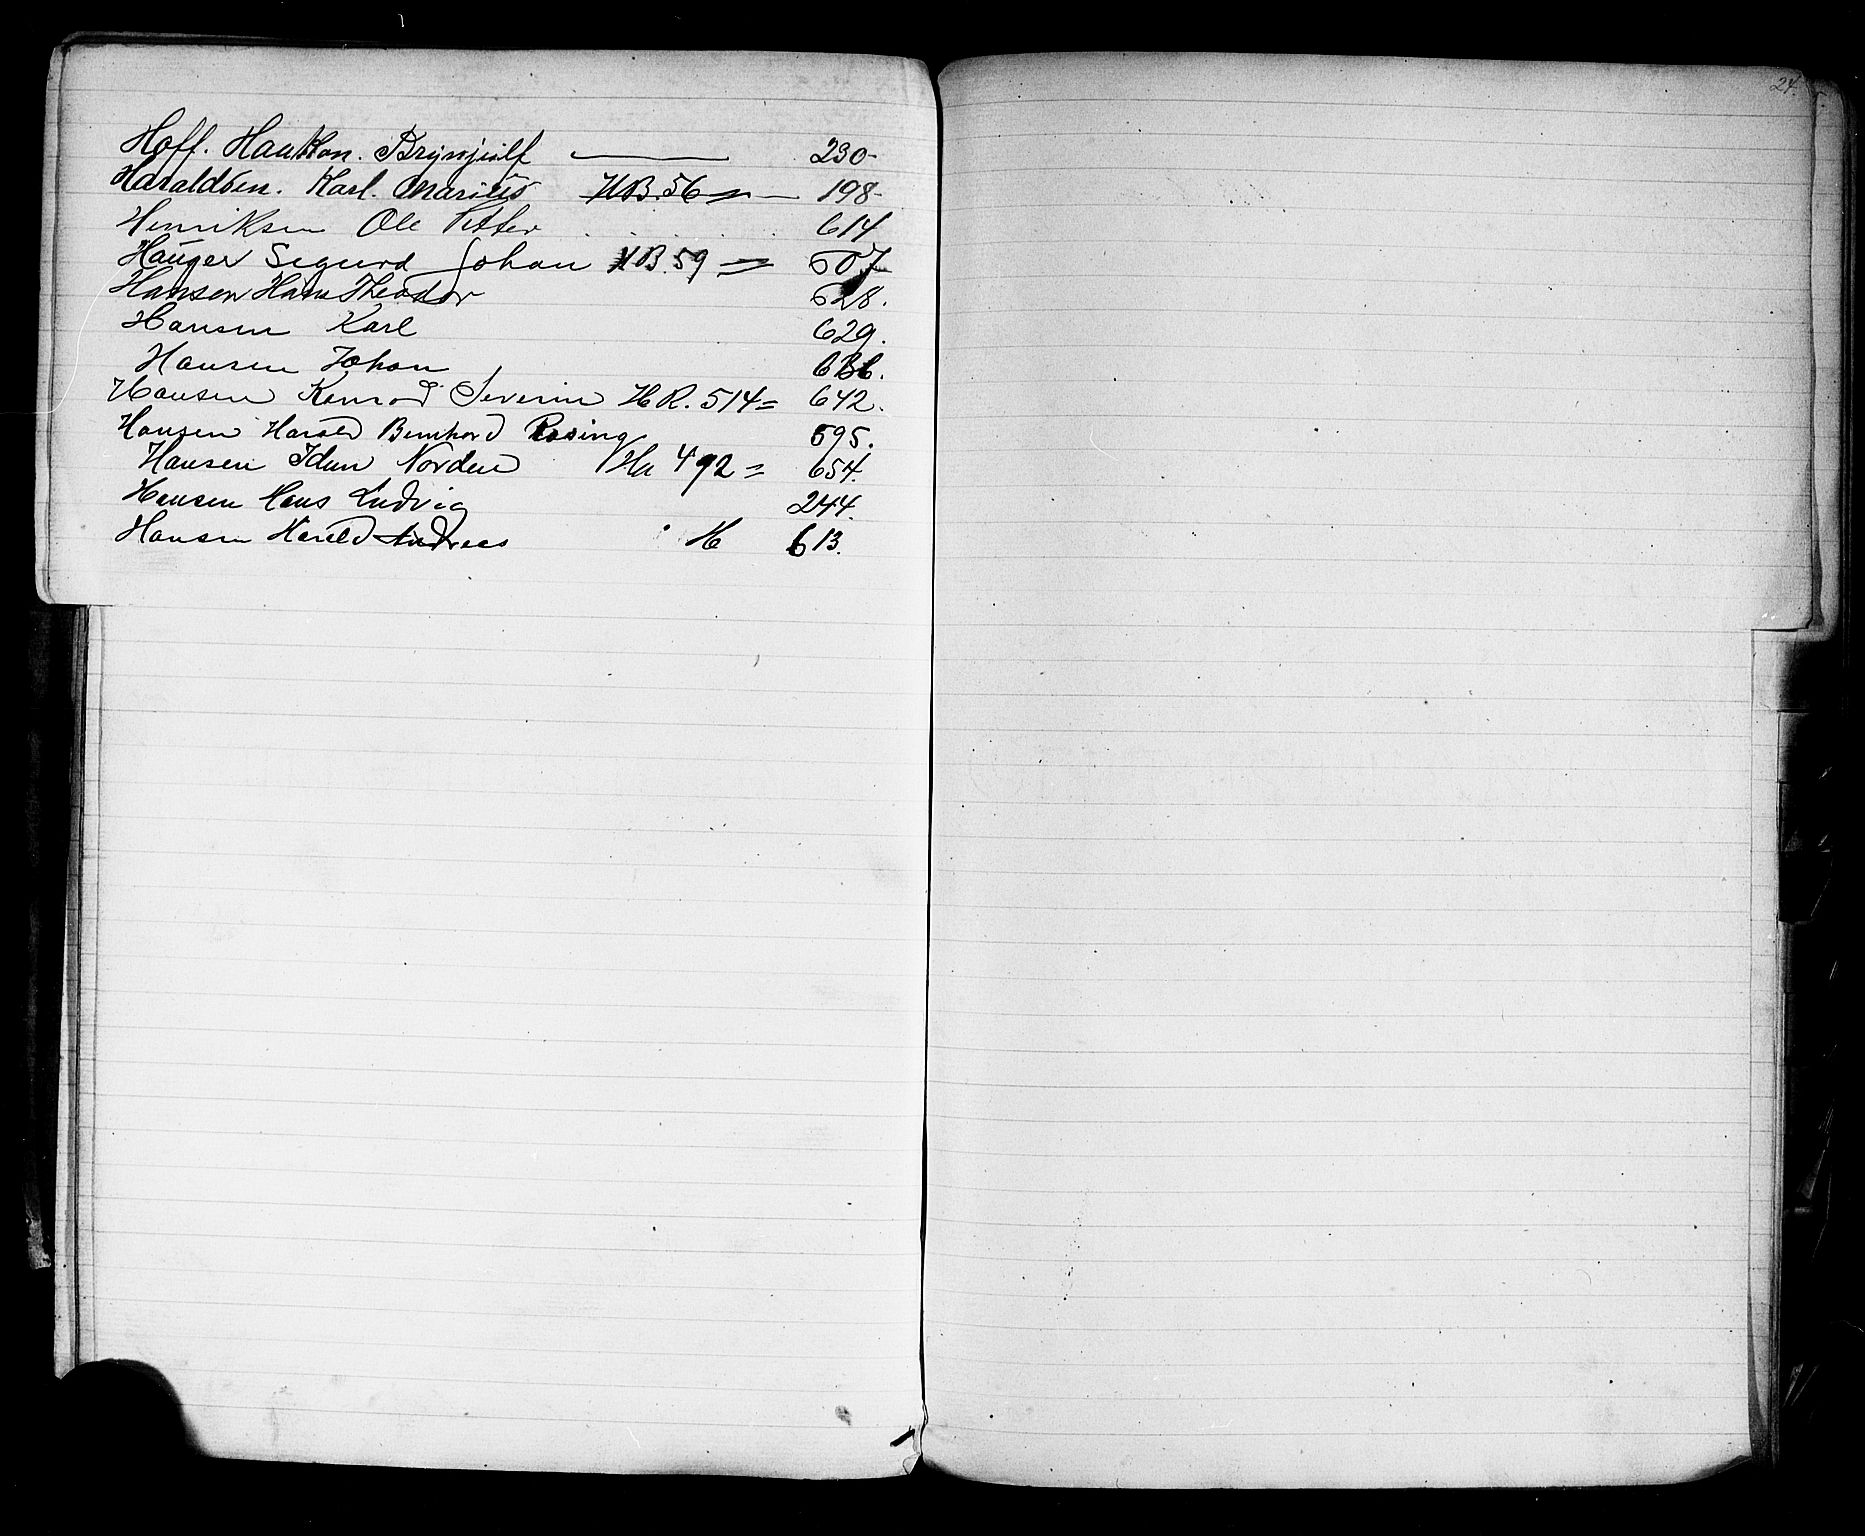 24.
Hoff. Haukon. Brynjulf 230-
Haraldsen. Karl. Marius HB. 56 = 198-
Henriksen Ole Petter 614
Hauger Sigurd Johan HB. 59 = 607
Hansen Hans Theodor 628.
Hansen Karl 629.
Hansen Johan
Hansen Konrad Severin HR. 514 = 642.
Hansen Harald Bernhard Rosing 595.
Hansen Idun Norden Ha 492 = 654.
Hansen Hans Ludvig 244.
Hansen Harald Andreas H 613.